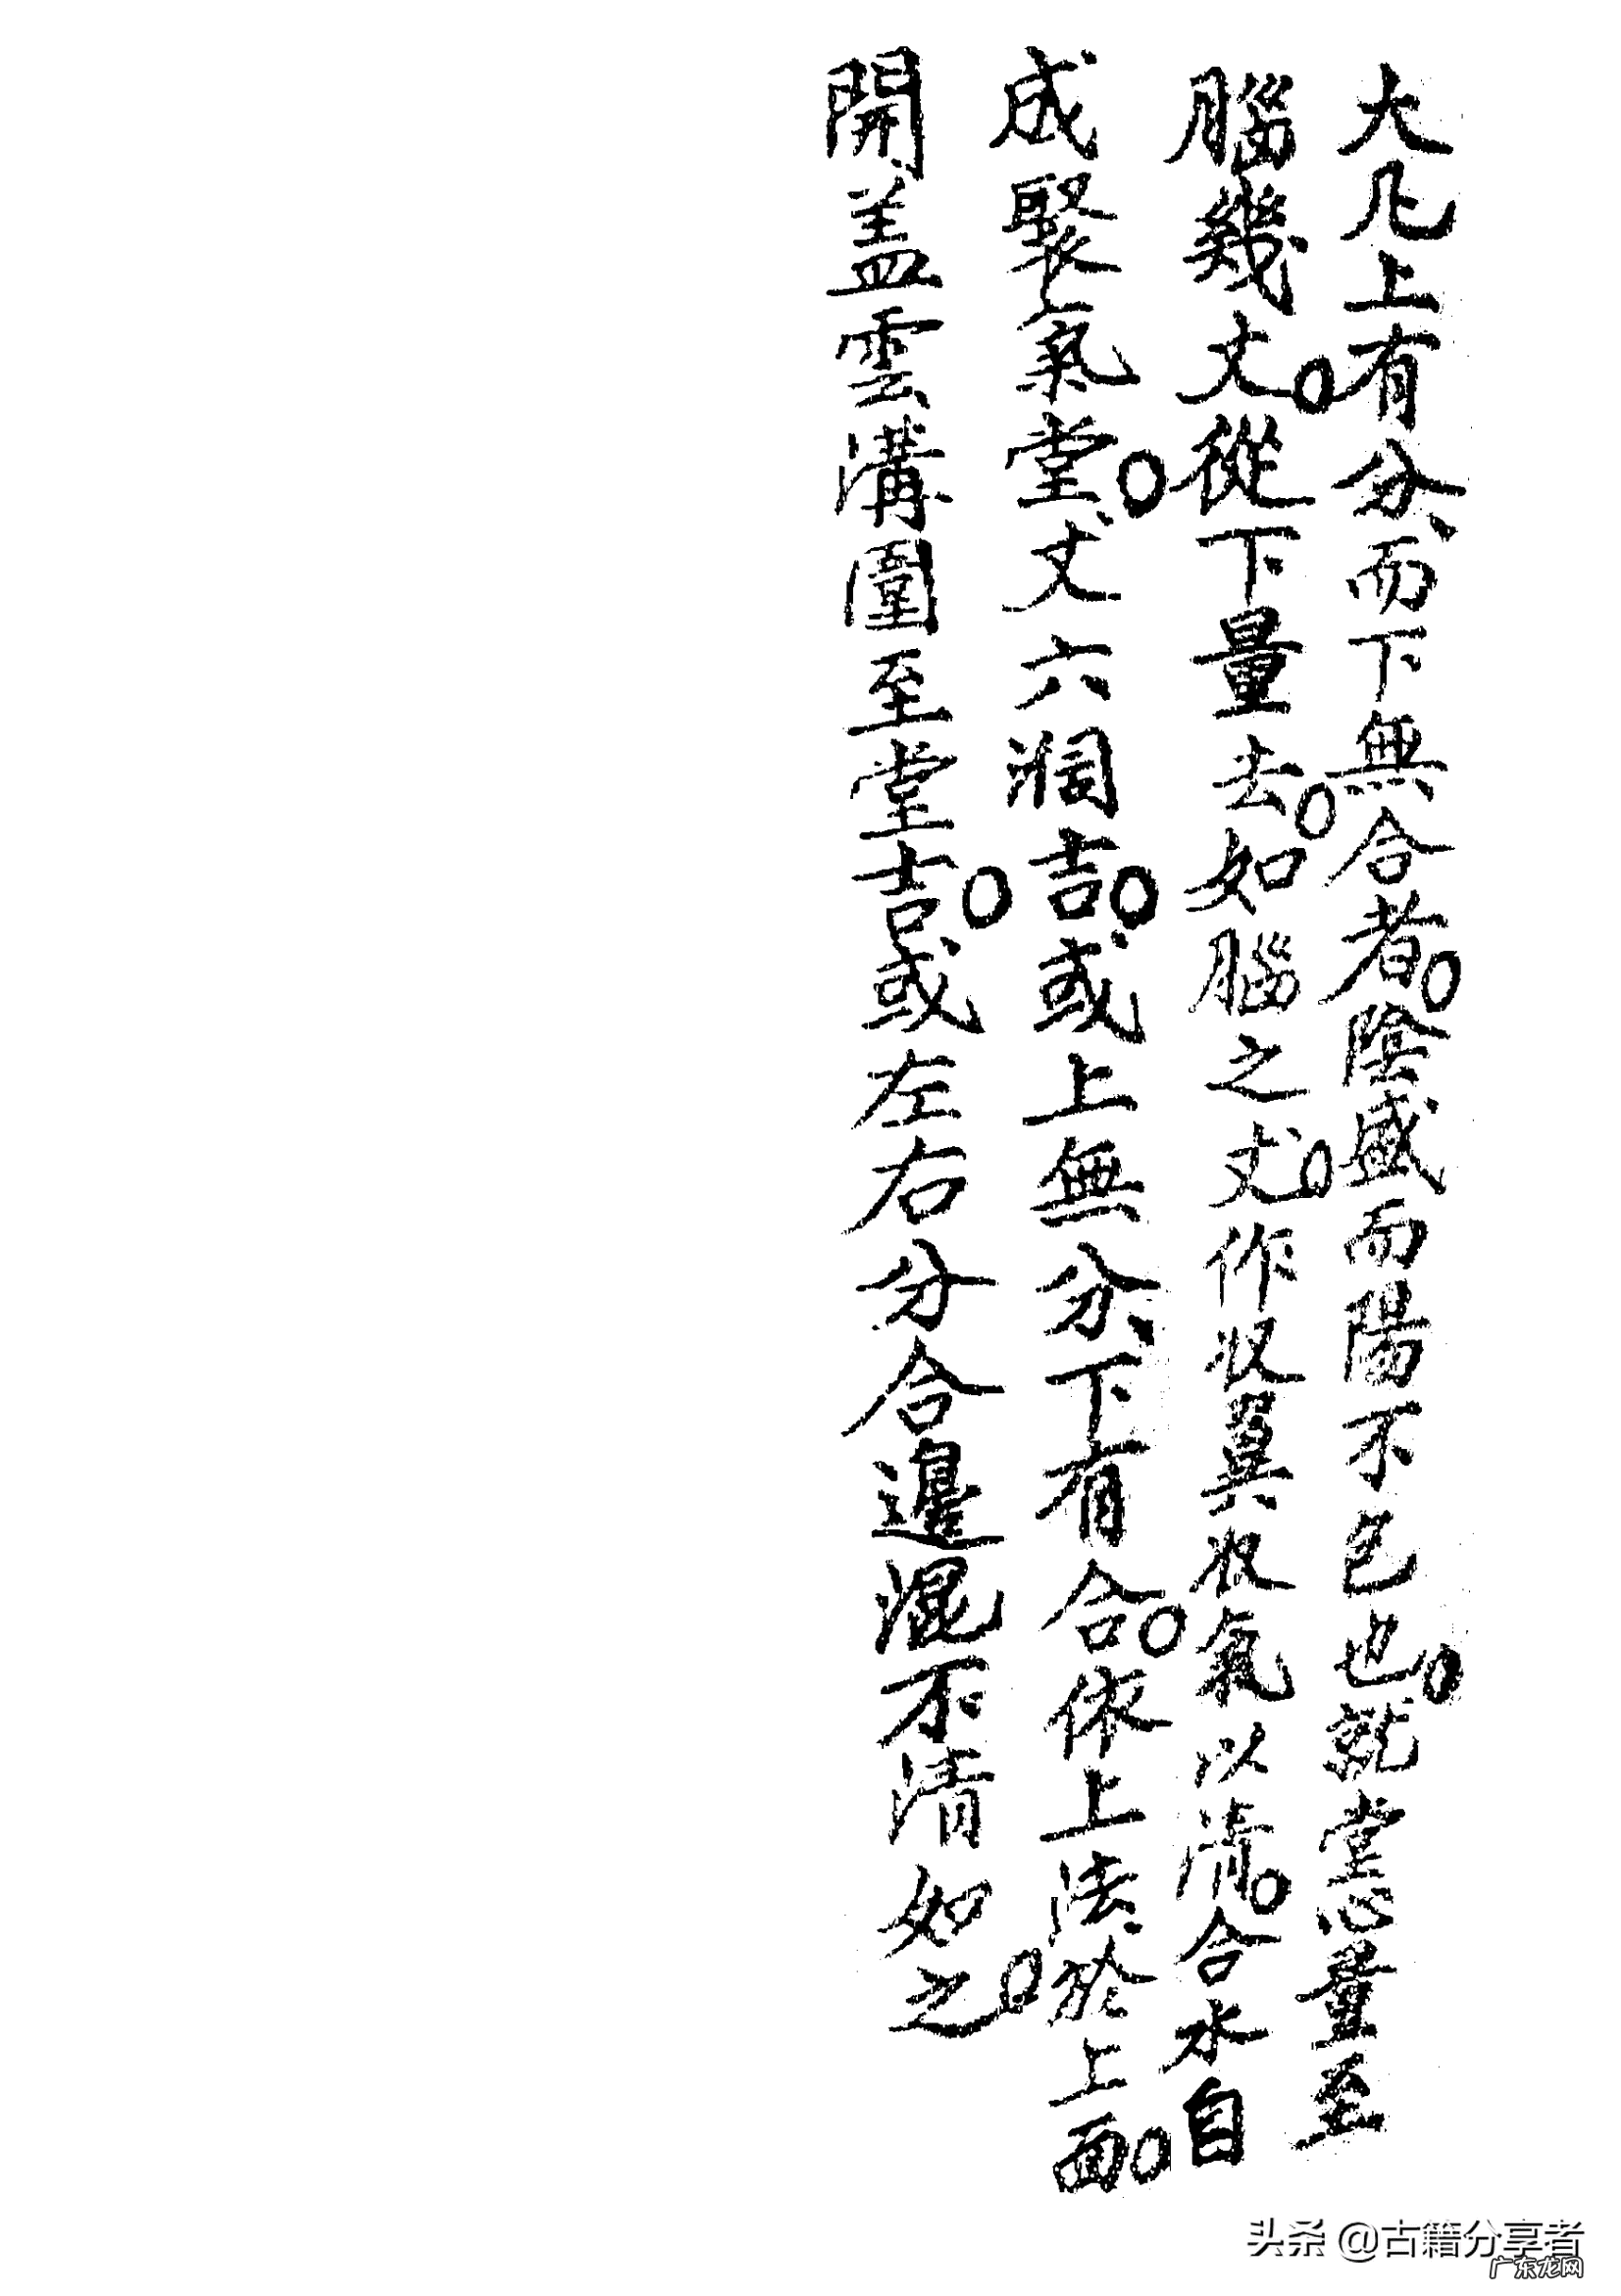 大凡上有分、而下無合者。陰盛而陽不包也。就堂心量至
腦幾丈。從下量去。如腦之丈。作收翼收氣以清。合水自
成聚氣堂。丈六濶吉。或上無分、下有合。依上法於上面。
開盖雲溝圍至堂吉。或左右分合邊混不清如之。
头条 @古籍分享者
广东龙网